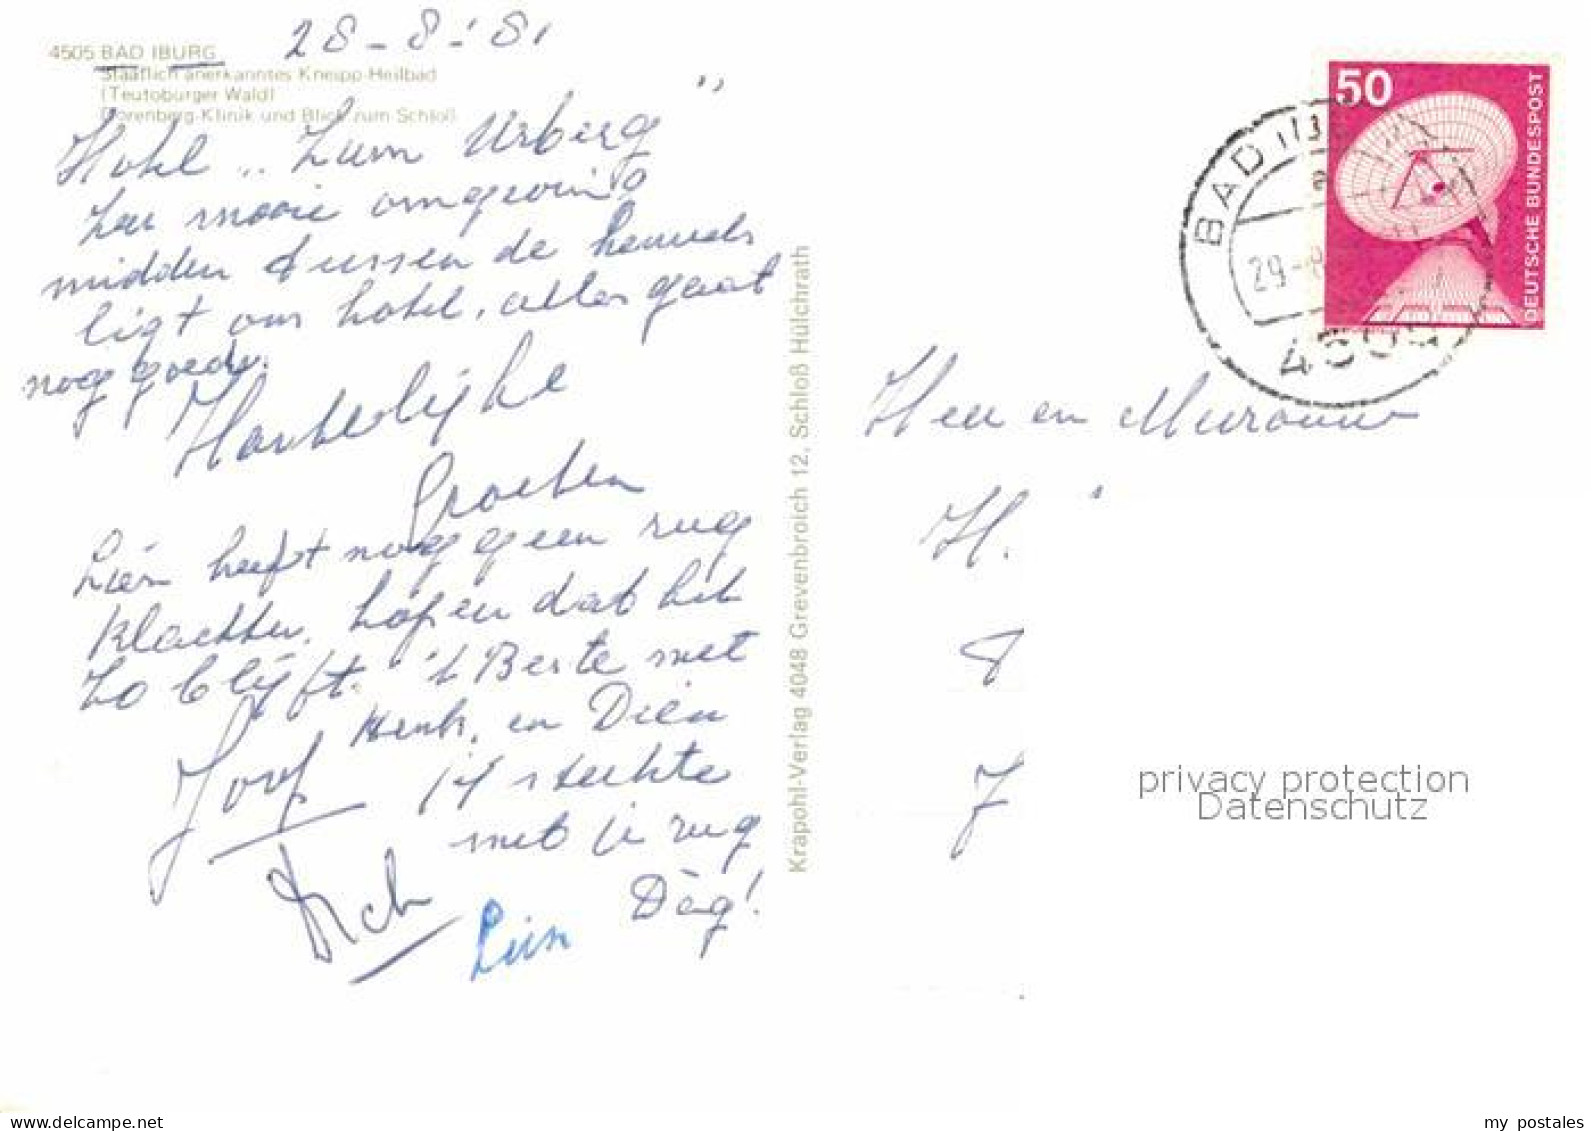 28-8-'81
4505 BAD IBURG
Staatlich anerkanntes Kneipp-Heilbad
(Teutoburger Wald)
Dorenberg-Klinik und Blick zum Schloß
Hotel „Zum Urberg"
Zeer mooie omgeving
midden tussen de heuvels
ligt ons hotel, alles gaat
nog goed.
Hartelijke
Groeten
Lien heeft nog geen rug
klachten, hopen dat het
zo blijft. 't Beste met
Henk, en Dien
Joop
sterkte
met je rug
Dàg!
Lien
Krapohl-Verlag 4048 Grevenbroich 12, Schloß Hülchrath
50
DEUTSCHE BUNDESPOST
BAD IBURG
29-8
4505
Heer en Mevrouw
H.
privacy protection
Datenschutz
my postales